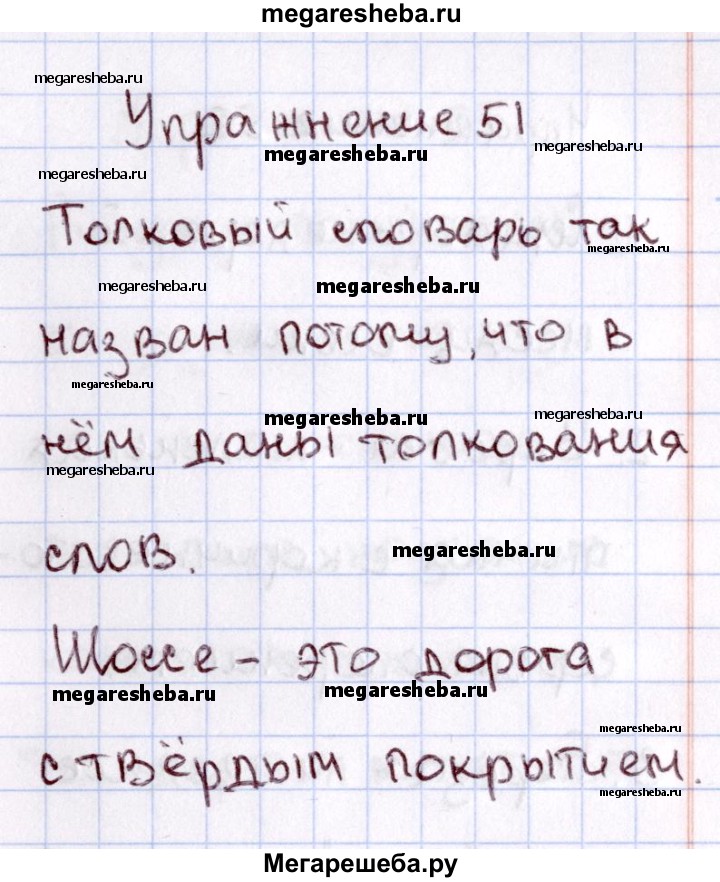 megaresheba.ru
megaresheba.ru
megaresheba.ru
Упражнение 51
megaresheba.ru
megaresheba.ru
megaresheba.ru
Толковый словарь так
megaresheba.ru
megaresheba.ru
megaresheba.ru
назван потому, что в
megaresheba.ru
megaresheba.ru
megaresheba.ru
нём даны толкования
megaresheba.ru
слов.
megaresheba.ru
Шоссе - это дорога
megaresheba.ru
megaresheba.ru
megaresheba.ru
с твёрдым покрытием.
megaresheba.ru
Мегарешеба.ру